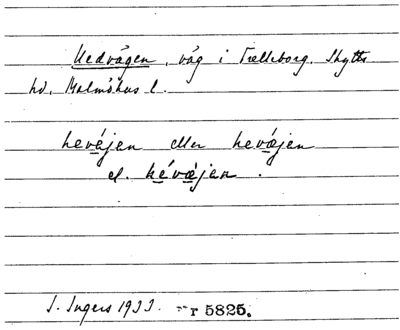 Hedvägen, väg i Trelleborg, Skytts
hd, Malmöhus l.
hevéjen eller hevǽjen
el. hévǽjen.
I. Ingers 1933. nr 5825.